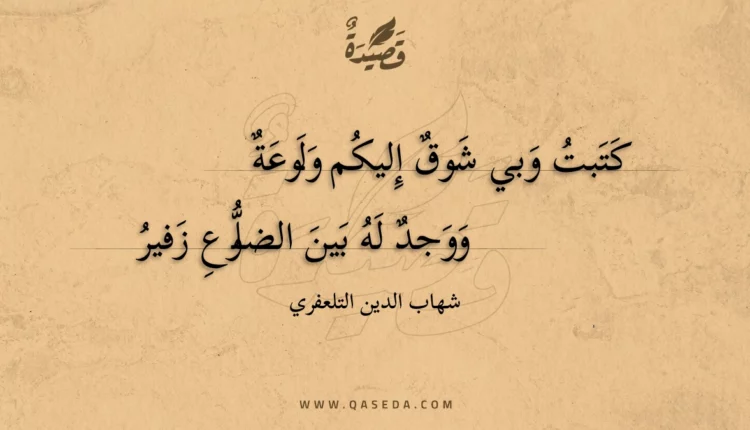 قَصِيْدَةٌ
كَتَبتُ وَبي شَوقٌ إِليكُم وَلَوعَةٌ
وَوَجدٌ لَهُ بَينَ الضلُّوعِ زَفيرُ
شهاب الدين التلعفري
WWW.QASEDA.COM